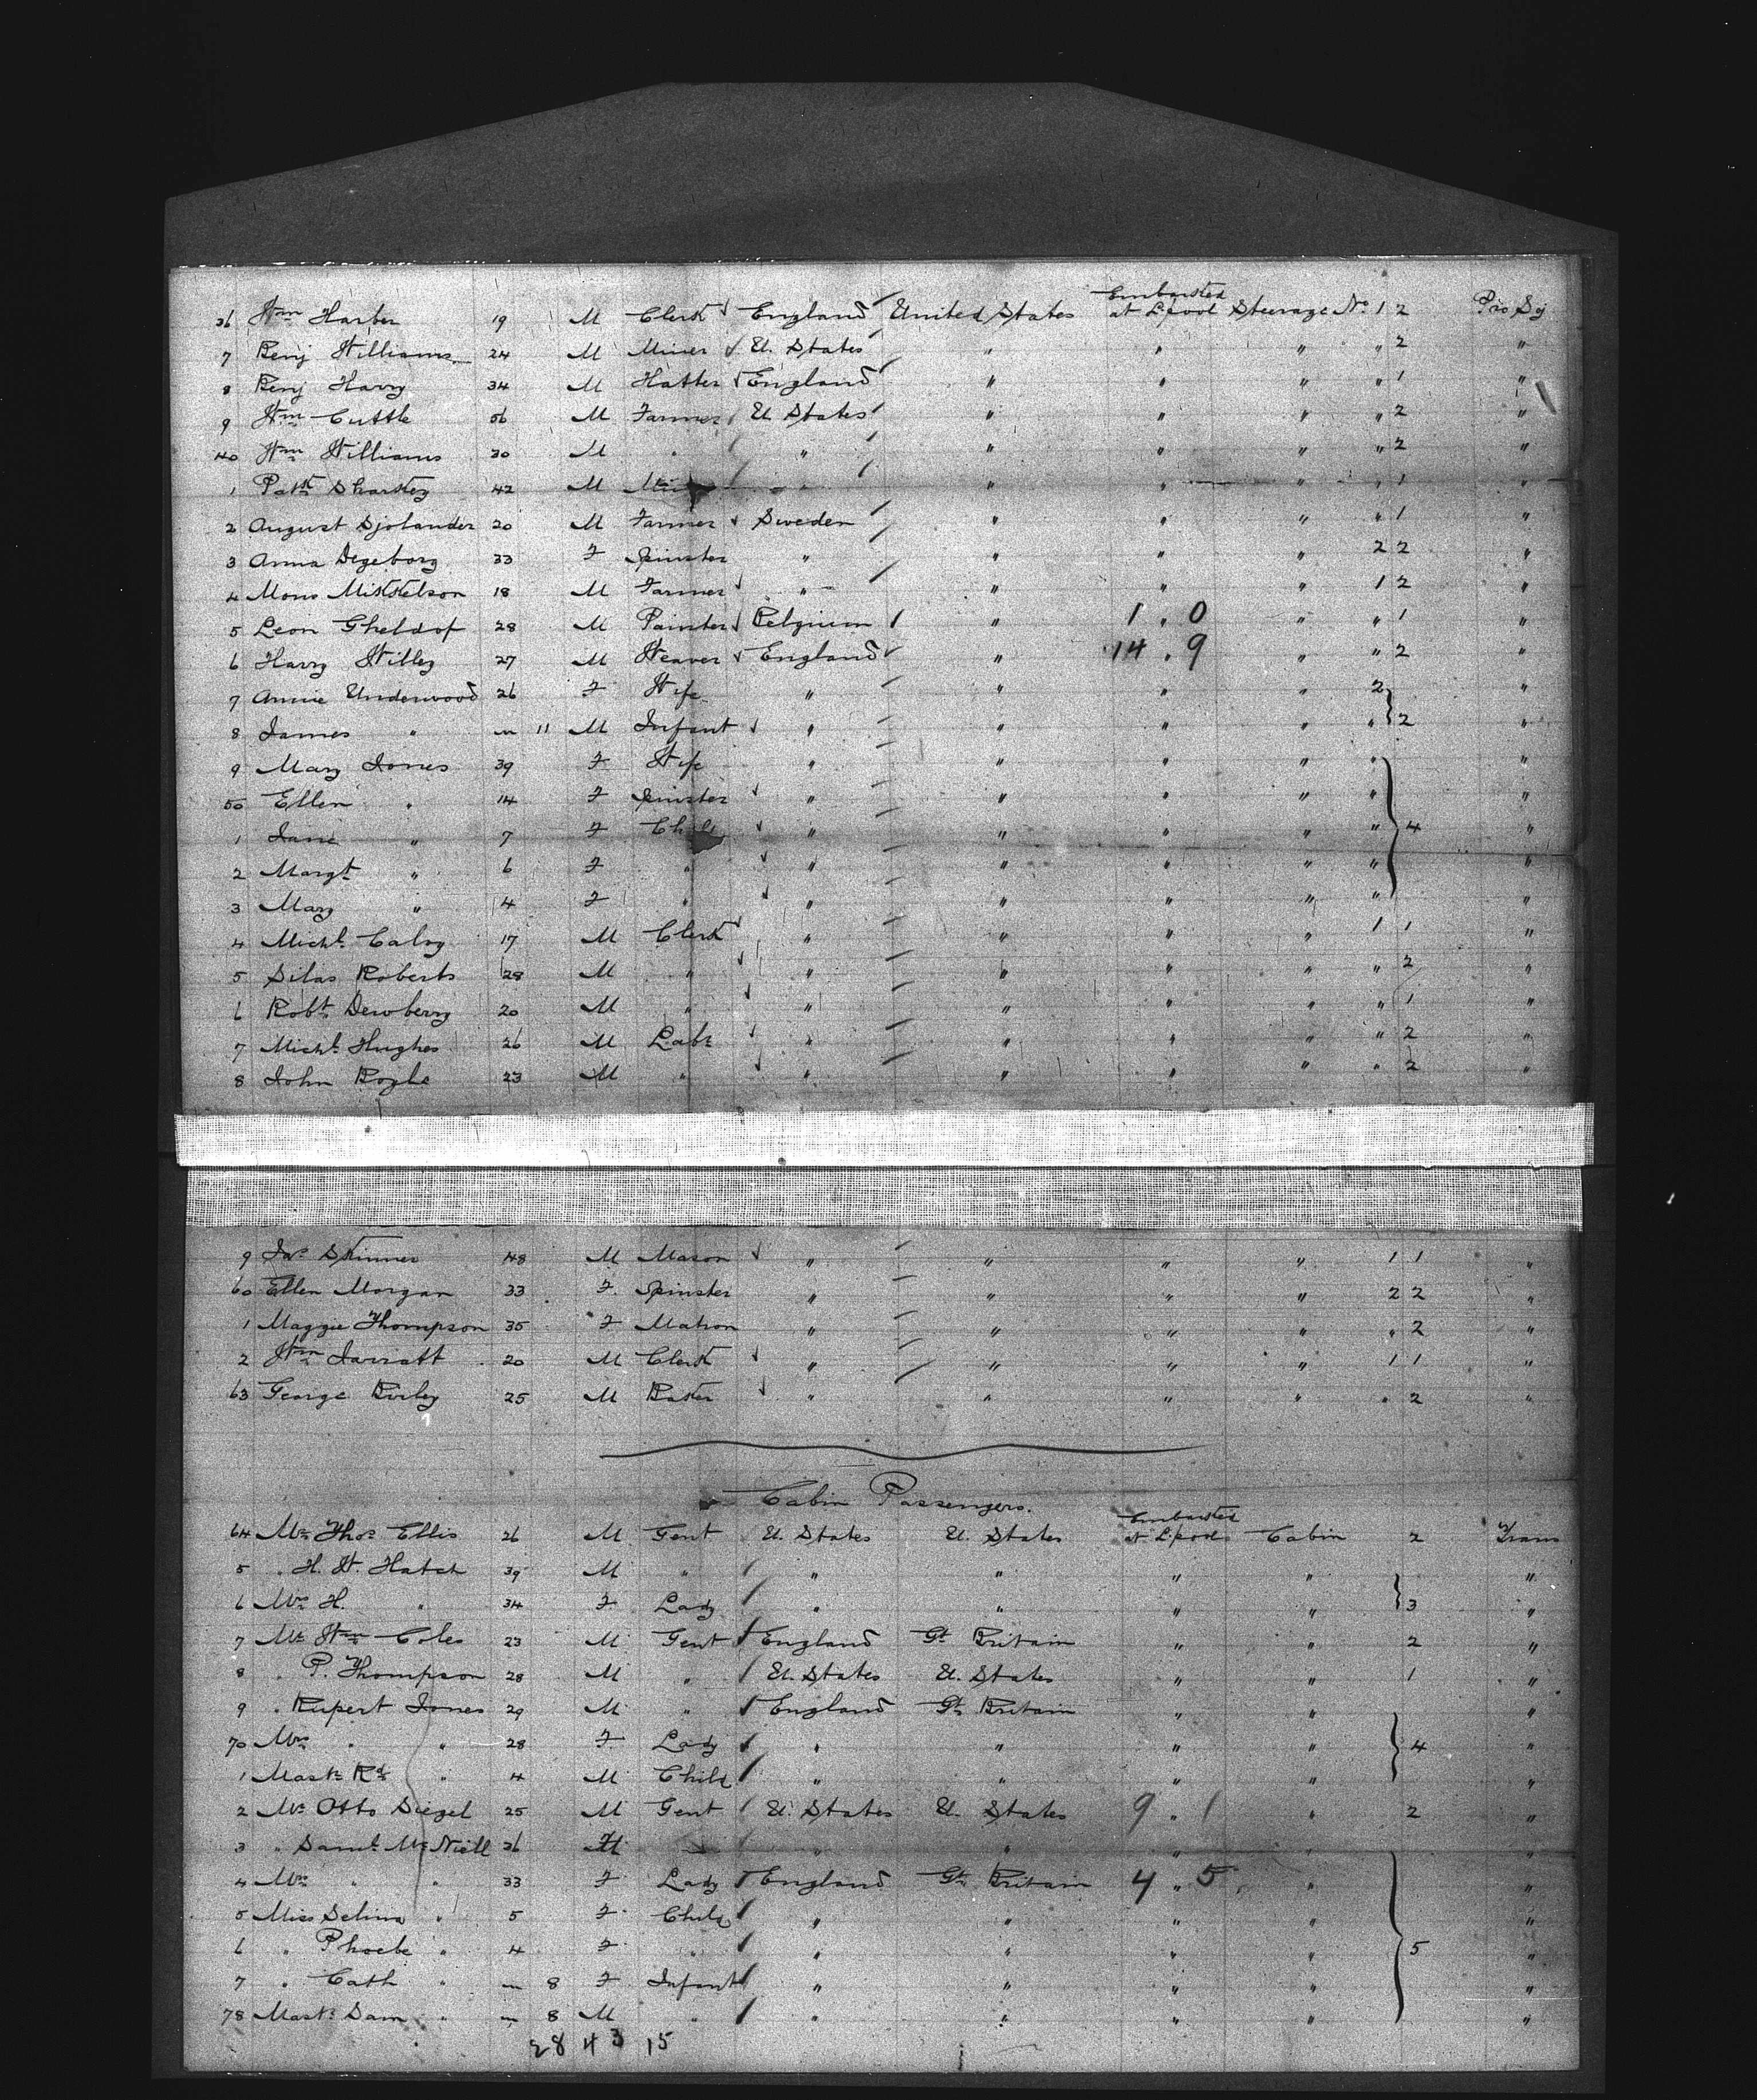 36 Wm Harber 19 M Clerk England United States Embarked at L'pool Steerage No 1 2 Pro Sj
7 Benj Williams 24 M Miner U. States " " " " 2 "
8 Benj Harry 34 M Hatter England " " " " 1 "
9 Wm Cuttle 56 M Farmer U States " " " " 2 "
40 Wm Williams 30 M " " " " " " 2 "
1 Patk Sharkey 42 M " " " " " 1 "
2 August Sjolander 20 M Farmer Sweden " " " " 1 "
3 Anna Degeborg 33 F Spinster " " " " 2 2 "
4 Mons Mikkelson 18 M Farmer " " " " 1 2 "
5 Leon Gheldof 28 M Painter Belgium " 1 " 0 " " 1 "
6 Harry Willey 27 M Weaver England " 14 " 9 " " 2 "
7 Annie Underwood 26 F Wife " " " " 2 "
8 James " m 11 M Infant " " " " " 2 "
9 Mary Jones 39 F Wife " " " " " "
50 Ellen " 14 F Spinster " " " " " "
1 Jane " 7 F Child " " " " " 4 "
2 Margt " 6 F " " " " " " "
3 Mary " 4 F " " " " " " "
4 Michl Calvy 17 M Clerk " " " " 1 1 "
5 Silas Roberts 28 M " " " " " " 2 "
6 Robt Dewberry 20 M " " " " " " 1 "
7 Michl Hughes 26 M Labr " " " " " 2 "
8 John Boyle 23 M " " " " " " 2 "
9 Jno Skinner 48 M Mason " " " " 1 1 "
60 Ellen Morgan 33 F Spinster " " " " 2 2 "
1 Maggie Thompson 35 F Matron " " " " " 2 "
2 Wm Jarratt 20 M Clerk " " " " 1 1 "
63 George Birley 25 M Baker " " " " " 2 "
Cabin Passengers.
64 Mr Thos Ellis 26 M Gent U. States U. States Embarked at L'pool Cabin 2 Trans
5 " H. W. Hatch 39 M " " " " " "
6 Mrs H. " 34 F Lady " " " " 3 "
7 Mr Wm Coles 23 M Gent England Gt Britain " " 2 "
8 " P. Thompson 28 M " U. States U. States " " 1 "
9 " Rupert Jones 29 M " England Gt Britain " " "
70 Mrs " " 28 F Lady " " " " 4 "
1 Mastr Rd " 4 M Child " " " " "
2 Mr Otto Siegel 25 M Gent U. States U. States 9 " 1 " 2 "
3 " Saml McNiell 36 M " " " " " "
4 Mrs " " 33 F Lady England Gt Britain 4 " 5 " "
5 Miss Selina " 5 F Child " " " " "
6 " Phoebe " 4 F " " " " " 5 "
7 " Cath " m 8 F Infant " " " " "
78 Mastr Sam " m 8 M " " " " " "
28 43 15